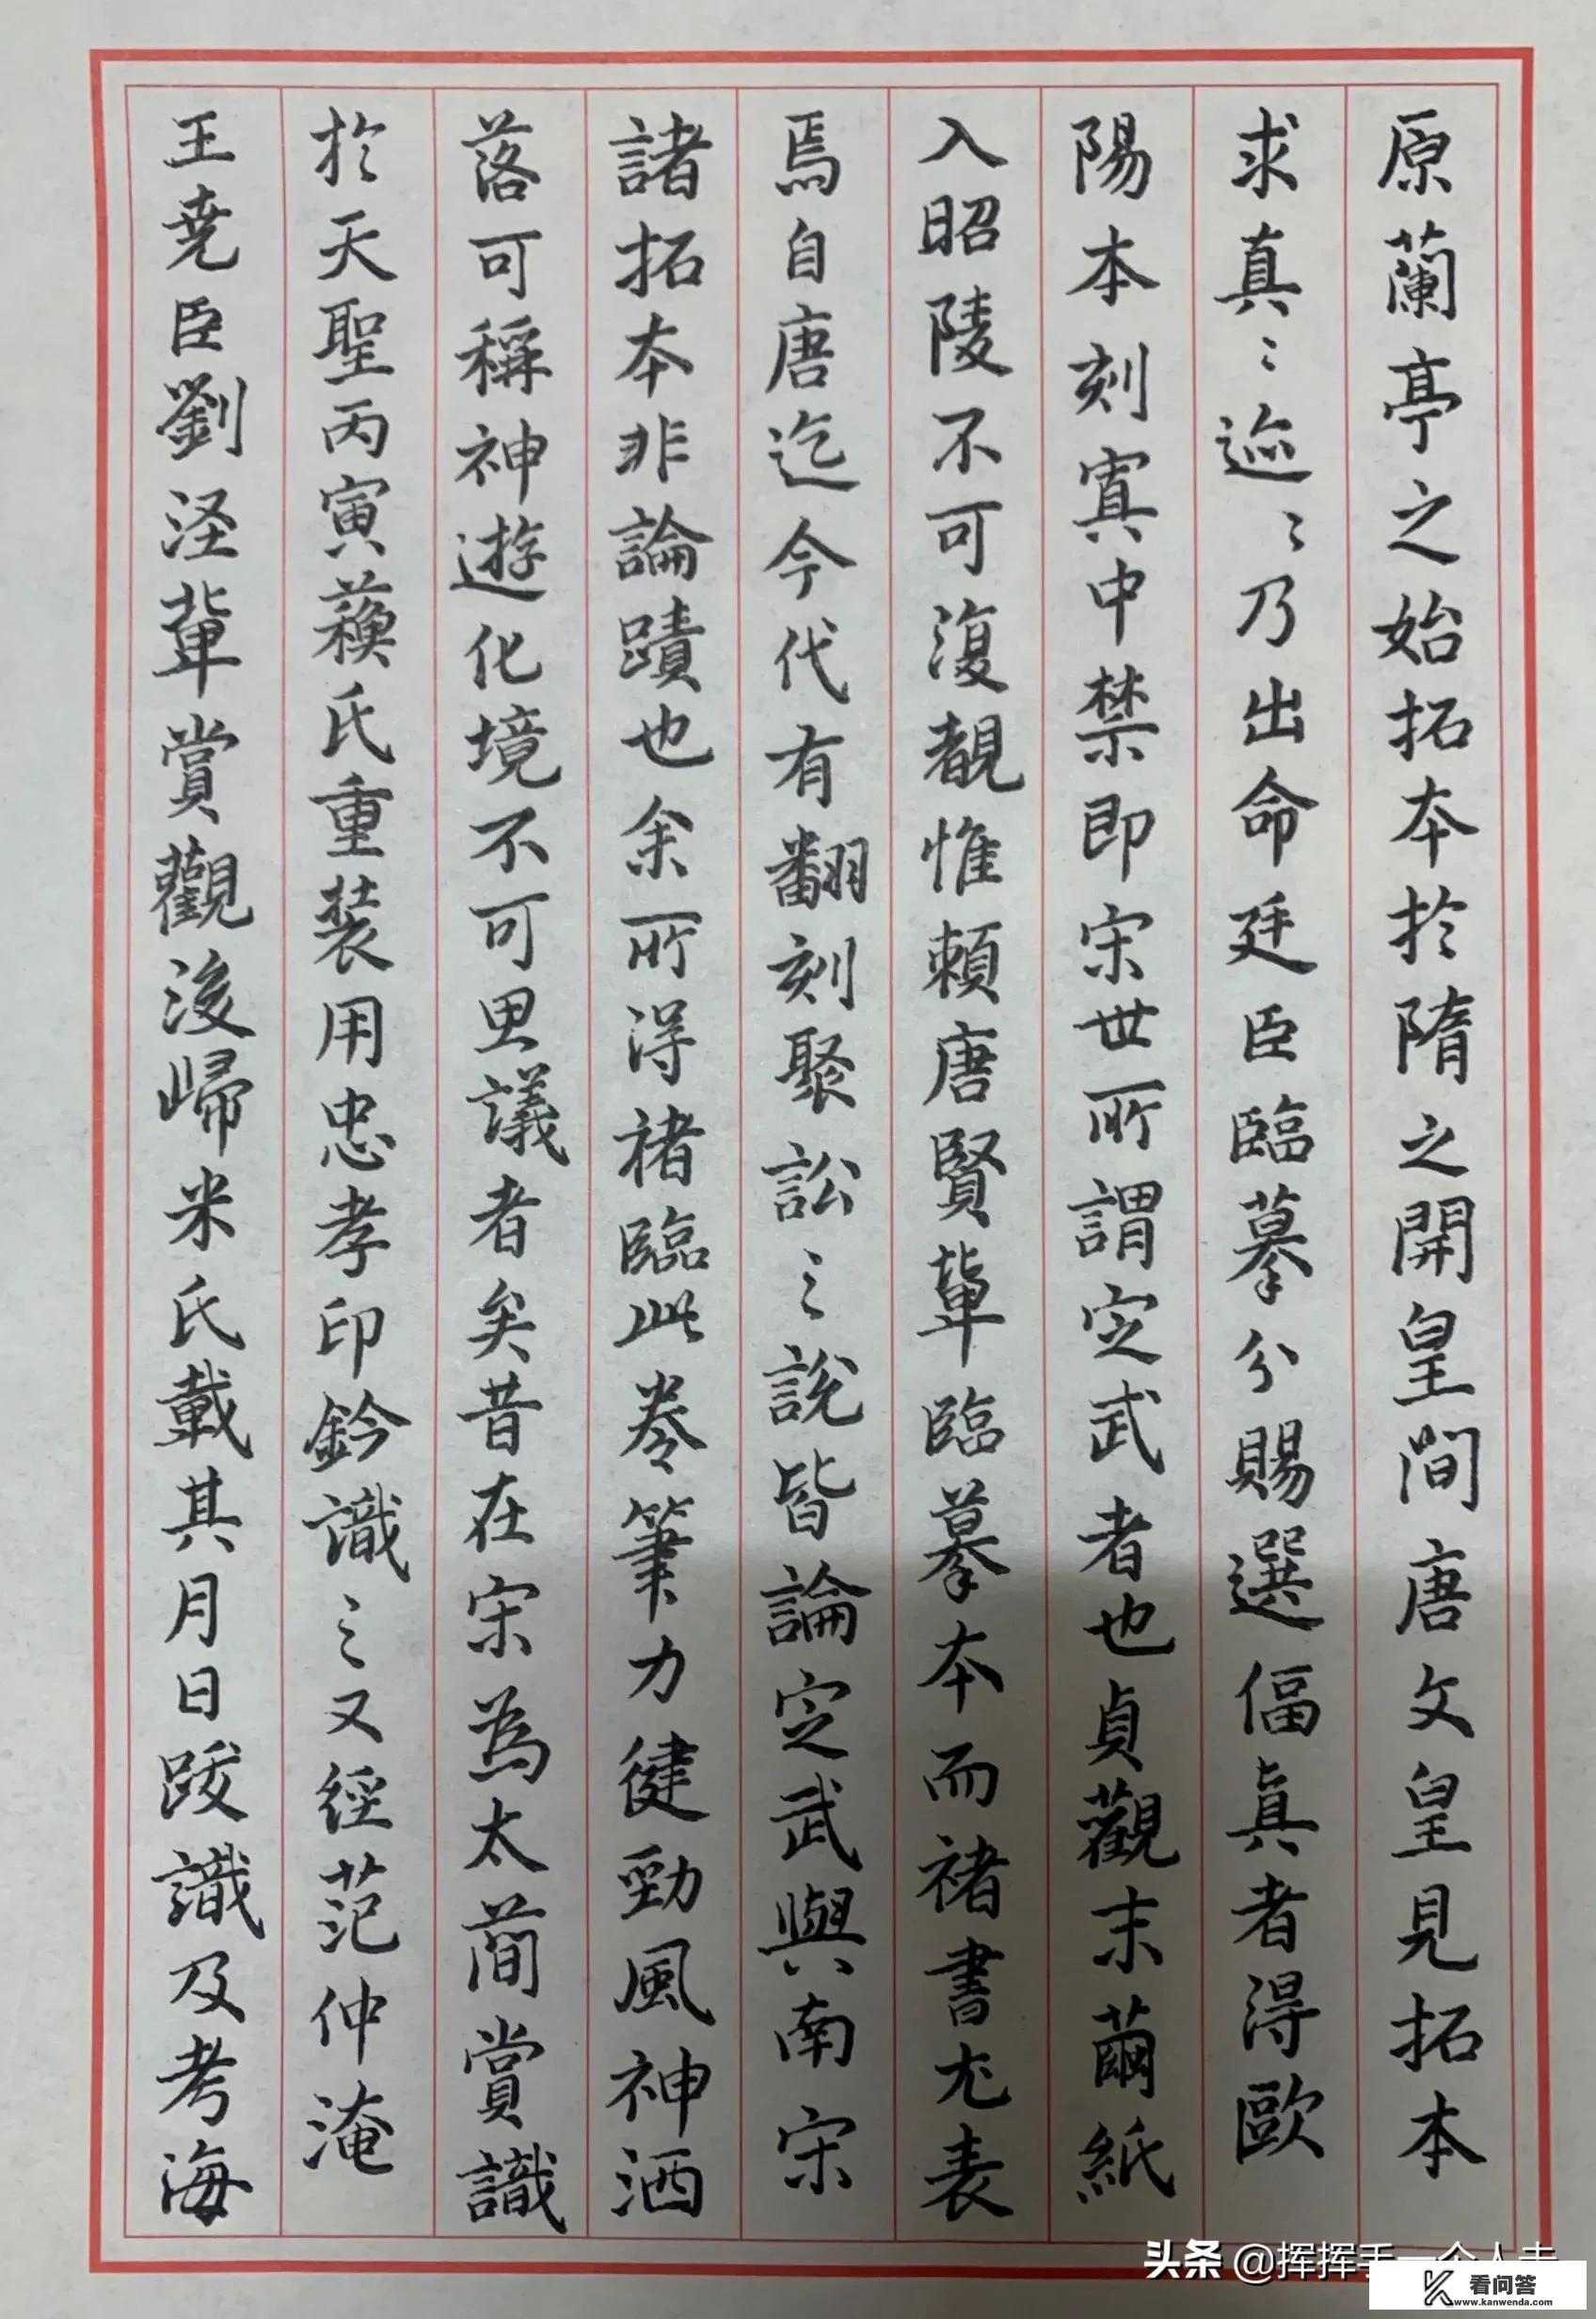 原蘭亭之始拓本於隋之開皇間唐文皇見拓本
求真〻迹〻乃出命廷臣臨摹分賜選偪真者得歐
陽本刻寘中禁即宋世所謂定武者也貞觀末繭紙
入昭陵不可復覩惟賴唐賢軰臨摹本而褚書尤表
焉自唐迄今代有翻刻聚訟之說皆論定武與南宋
諸拓本非論蹟也余所得褚臨此卷筆力健勁風神洒
落可稱神遊化境不可思議者矣昔在宋為太蕳賞識
於天聖丙寅蘓氏重装用忠孝印鈐識之又經范仲淹
王堯臣劉涇軰賞觀後歸米氏載其月日跋識及考海
头条 @挥挥手一个人走
看问答
www.kanwenda.com